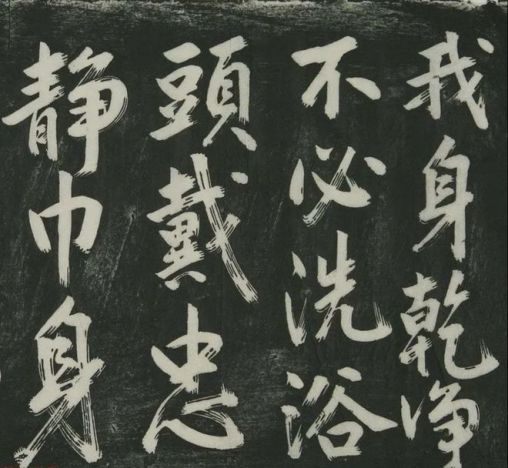 我身乾净
不必洗浴
頭戴忠
静巾身